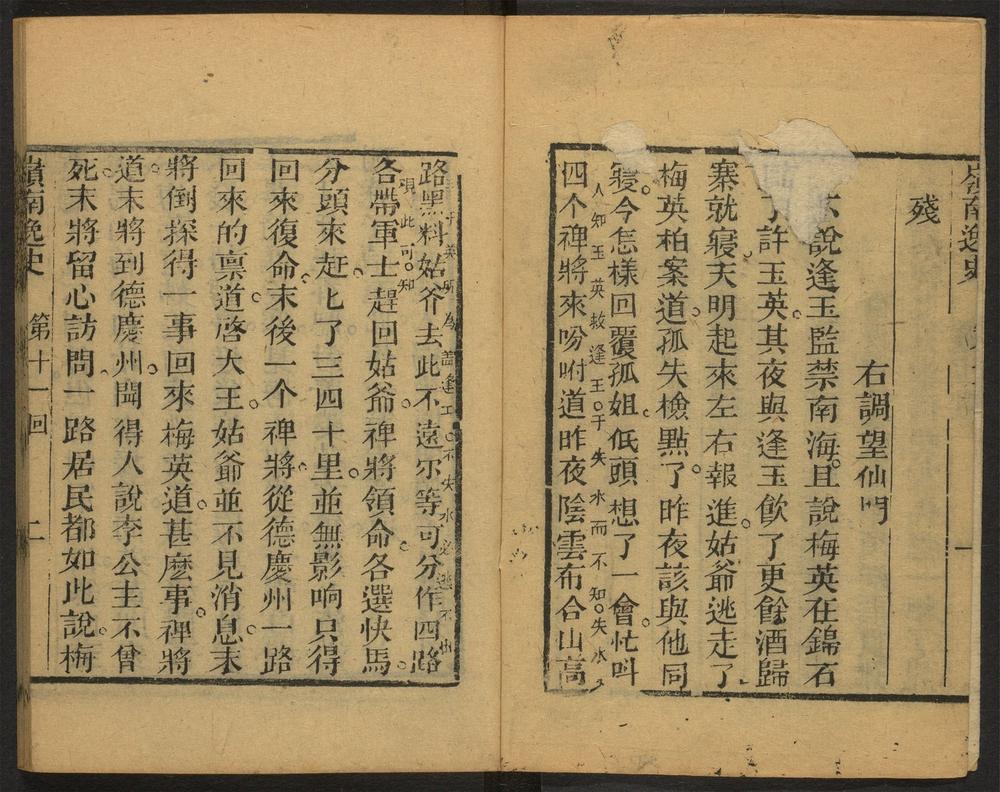 嶺南逸史
一
殘
右調望仙門
說逢玉監禁南海且說梅英在錦石
了許玉英其夜與逢玉飮了更餘酒歸
寨就寢天明起來左右報進姑爺逃走了
梅英柏案道孤失檢點了昨夜該與他同
寢今怎樣回覆孤姐低頭想了一會忙叫
人知玉英敖逢玉于失水而不知失水
四个禆將來吩咐道昨夜陰雲布合山高
路黑料姑爷去此不遠尔等可分作四路
于英所為盖逢工不失水必逃不出
現此可知
各帶軍士趕回姑爺禆將領命各選快馬
分頭來赶匕了三四十里並無影响只得
回來復命末後一个禆將從德慶州一路
回來的禀道啓大王姑爺並不見消息末
將倒探得一事回來梅英道甚麽事禆將
道末將到德慶州聞得人說李公主不曾
死末將留心訪問一路居民都如此說梅
嶺南逸史 第十一回 二